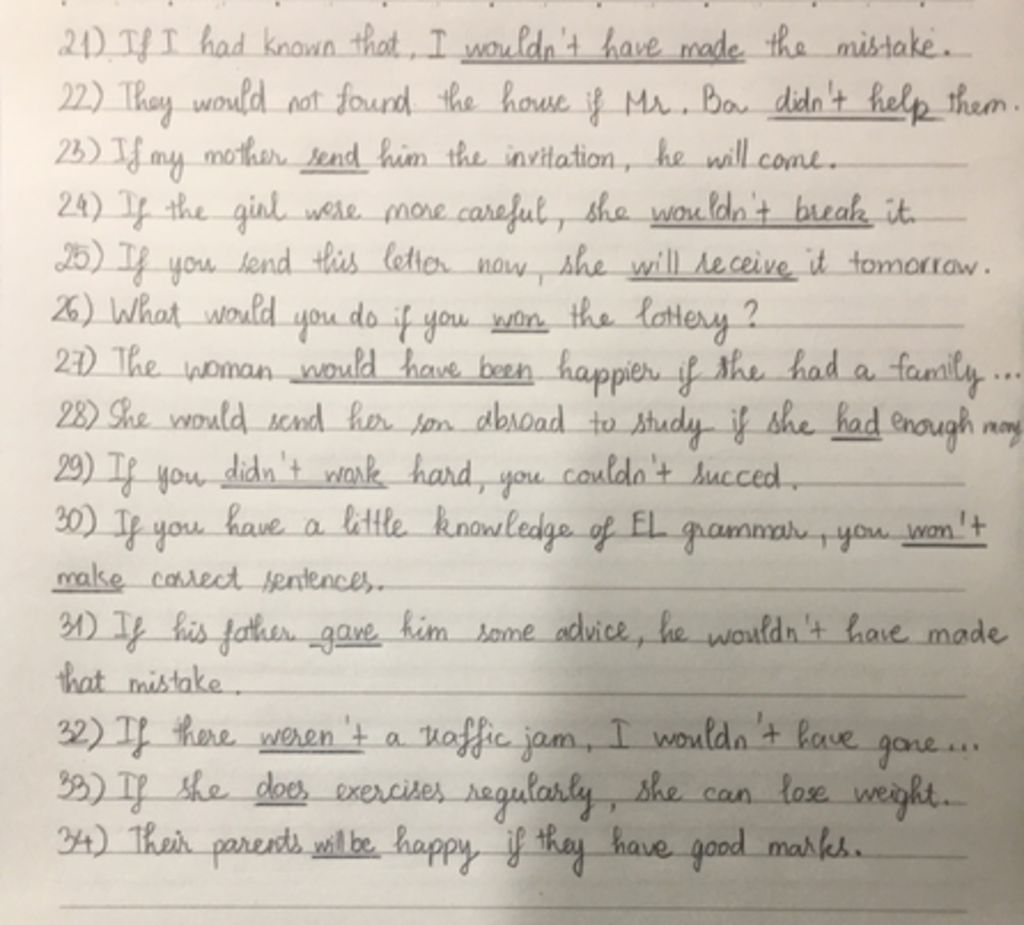 21) If I had known that, I wouldn't have made the mistake.
22) They would not found the house if Mr. Ba didn't help them.
23) If my mother send him the invitation, he will come.
24) If the girl were more careful, she wouldn't break it.
25) If you send this letter now, she will receive it tomorrow.
26) What would you do if you won the lottery?
27) The woman would have been happier if she had a family...
28) She would send her son abroad to study if she had enough
29) If you didn't work hard, you couldn't succed.
30) If you have a little knowledge of EL grammar, you won't
make correct sentences.
31) If his father gave him some advice, he wouldn't have made
that mistake.
32) If there weren't a traffic jam, I wouldn't have gone...
33) If she does exercises regularly, she can lose weight.
34) Their parents will be happy if they have good marks.